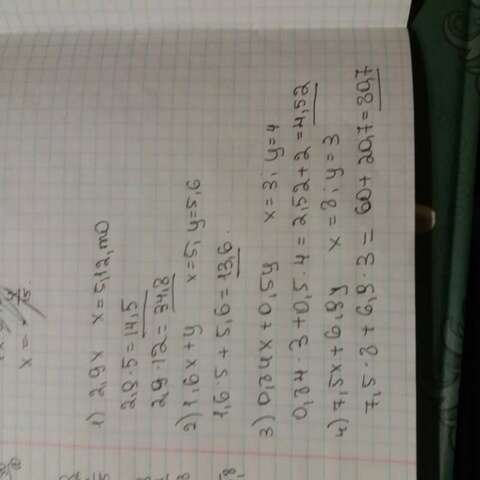 x = - 4/15
1) 2,9x x = 5,12, то
2,9·5 = 14,5
2,9·12 = 34,8
2) 1,6x + y x = 5, y = 5,6
1,6·5 + 5,6 = 13,6.
3) 0,84x + 0,5y x = 3; y = 4
0,84·3 + 0,5·4 = 2,52 + 2 = 4,52
4) 7,5x + 6,9y x = 8; y = 3
7,5·8 + 6,9·3 = 60 + 20,7 = 80,7